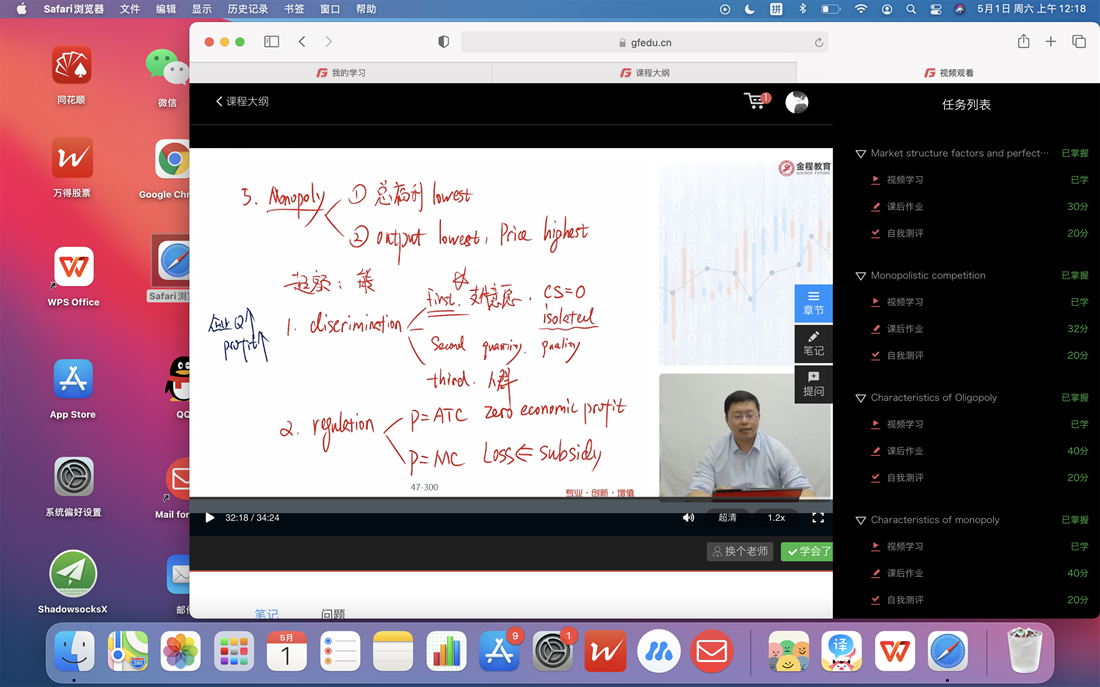 Safari浏览器 文件 编辑 显示 历史记录 书签 窗口 帮助
拼
5月1日 周六 上午12:18
同花顺
微信
万得股票
Google Chr
WPS Office
Safari浏览
App Store
QQ
系统偏好设置
Mail for
ShadowsocksX
邮件
gfedu.cn
我的学习
课程大纲
视频观看
课程大纲
1
金程教育
GOLDEN FUTURE
5. Monopoly ① 总福利 lowest
② output lowest, Price highest
First. 支付意愿. CS=0
isolated
企业Q↑
profit↑
1. discrimination
Second quantity. quality
third. 人群
2. regulation P=ATC zero economic profit
P=MC Loss ⇐ subsidy
47-300
专业·创新·增值
章节
笔记
提问
32:18 / 34:24
超清
1.2x
换个老师
学会了
笔记
问题
任务列表
Market structure factors and perfect··· 已掌握
视频学习 已学
课后作业 30分
自我测评 20分
Monopolistic competition 已掌握
视频学习 已学
课后作业 32分
自我测评 20分
Characteristics of Oligopoly 已掌握
视频学习 已学
课后作业 40分
自我测评 20分
Characteristics of monopoly 已掌握
视频学习 已学
课后作业 40分
自我测评 20分
280
5月
1
9
1
译